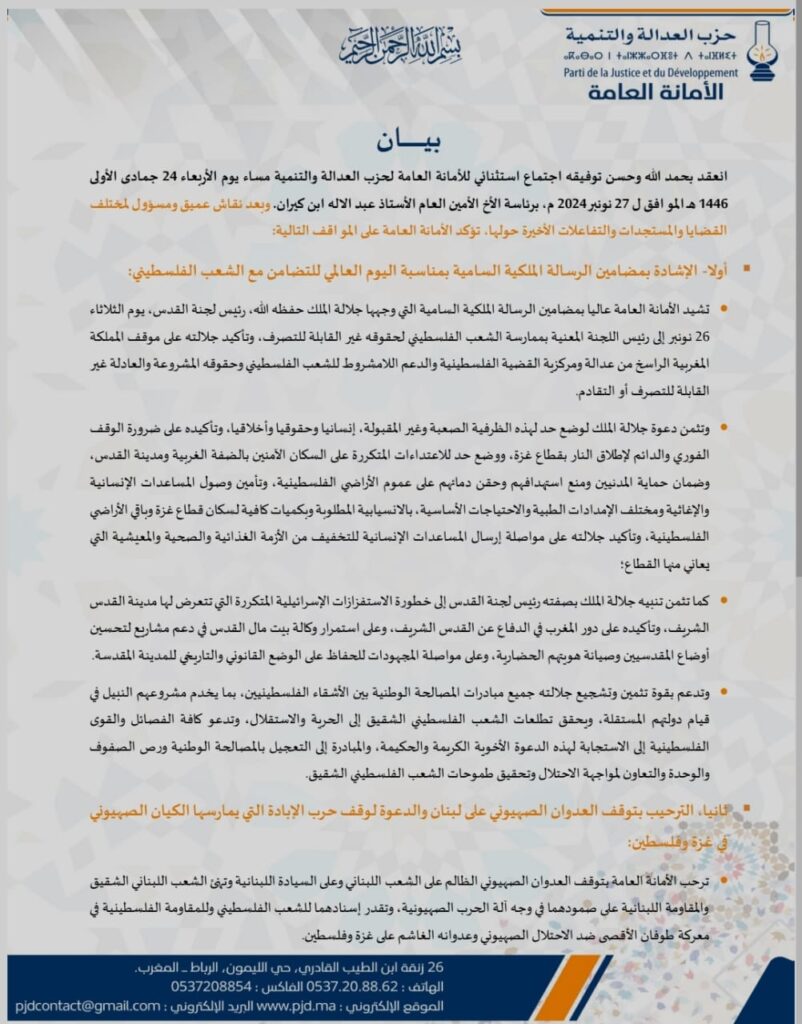 بسم الله الرحمن الرحيم
حزب العدالة والتنمية
ⴰⴽⴰⴱⴰⵔ ⵏ ⵜⴰⵏⵣⵣⴰⵔⴼⵓⵜ ⴷ ⵜⴰⵏⴼⵍⵉⵜ
Parti de la Justice et du Développement
الأمانة العامة
بيـــــان
انعقد بحمد الله وحسن توفيقه اجتماع استثنائي للأمانة العامة لحزب العدالة والتنمية مساء يوم الأربعاء 24 جمادى الأولى
1446 هـ الموافق ل 27 نونبر 2024 م، برئاسة الأخ الأمين العام الأستاذ عبد الاله ابن كيران. وبعد نقاش عميق ومسؤول لمختلف
القضايا والمستجدات والتفاعلات الأخيرة حولها، تؤكد الأمانة العامة على المواقف التالية:
▪ أولا- الإشادة بمضامين الرسالة الملكية السامية بمناسبة اليوم العالمي للتضامن مع الشعب الفلسطيني:
• تشيد الأمانة العامة عاليا بمضامين الرسالة الملكية السامية التي وجهها جلالة الملك حفظه الله، رئيس لجنة القدس، يوم الثلاثاء
26 نونبر إلى رئيس اللجنة المعنية بممارسة الشعب الفلسطيني لحقوقه غير القابلة للتصرف، وتأكيد جلالته على موقف المملكة
المغربية الراسخ من عدالة ومركزية القضية الفلسطينية والدعم اللامشروط للشعب الفلسطيني وحقوقه المشروعة والعادلة غير
القابلة للتصرف أو التقادم.
• وتثمن دعوة جلالة الملك لوضع حد لهذه الظرفية الصعبة وغير المقبولة، إنسانيا وحقوقيا وأخلاقيا، وتأكيده على ضرورة الوقف
الفوري والدائم لإطلاق النار بقطاع غزة، ووضع حد للاعتداءات المتكررة على السكان الآمنين بالضفة الغربية ومدينة القدس،
وضمان حماية المدنيين ومنع استهدافهم وحقن دمائهم على عموم الأراضي الفلسطينية، وتأمين وصول المساعدات الإنسانية
والإغاثية ومختلف الإمدادات الطبية والاحتياجات الأساسية، بالانسيابية المطلوبة وبكميات كافية لسكان قطاع غزة وباقي الأراضي
الفلسطينية، وتأكيد جلالته على مواصلة إرسال المساعدات الإنسانية للتخفيف من الأزمة الغذائية والصحية والمعيشية التي
يعاني منها القطاع؛
• كما تثمن تنبيه جلالة الملك بصفته رئيس لجنة القدس إلى خطورة الاستفزازات الإسرائيلية المتكررة التي تتعرض لها مدينة القدس
الشريف، وتأكيده على دور المغرب في الدفاع عن القدس الشريف، وعلى استمرار وكالة بيت مال القدس في دعم مشاريع لتحسين
أوضاع المقدسيين وصيانة هويتهم الحضارية، وعلى مواصلة المجهودات للحفاظ على الوضع القانوني والتاريخي للمدينة المقدسة.
• وتدعم بقوة تثمين وتشجيع جلالته جميع مبادرات المصالحة الوطنية بين الأشقاء الفلسطينيين، بما يخدم مشروعهم النبيل في
قيام دولتهم المستقلة، ويحقق تطلعات الشعب الفلسطيني الشقيق إلى الحرية والاستقلال، وتدعو كافة الفصائل والقوى
الفلسطينية إلى الاستجابة لهذه الدعوة الأخوية الكريمة والحكيمة، والمبادرة إلى التعجيل بالمصالحة الوطنية ورص الصفوف
والوحدة والتعاون لمواجهة الاحتلال وتحقيق طموحات الشعب الفلسطيني الشقيق.
▪ ثانيا، الترحيب بتوقف العدوان الصهيوني على لبنان والدعوة لوقف حرب الإبادة التي يمارسها الكيان الصهيوني
في غزة وفلسطين:
• ترحب الأمانة العامة بتوقف العدوان الصهيوني الظالم على الشعب اللبناني وعلى السيادة اللبنانية وتهنئ الشعب اللبناني الشقيق
والمقاومة اللبنانية على صمودهما في وجه آلة الحرب الصهيونية، وتقدر إسنادهما للشعب الفلسطيني وللمقاومة الفلسطينية في
معركة طوفان الأقصى ضد الاحتلال الصهيوني وعدوانه الغاشم على غزة وفلسطين.
26 زنقة ابن الطيب القادري، حي الليمون، الرباط ـ المغرب.
الهاتف : 0537.20.88.62 الفاكس : 0537208854
الموقع الإلكتروني : www.pjd.ma البريد الإلكتروني : pjdcontact@gmail.com